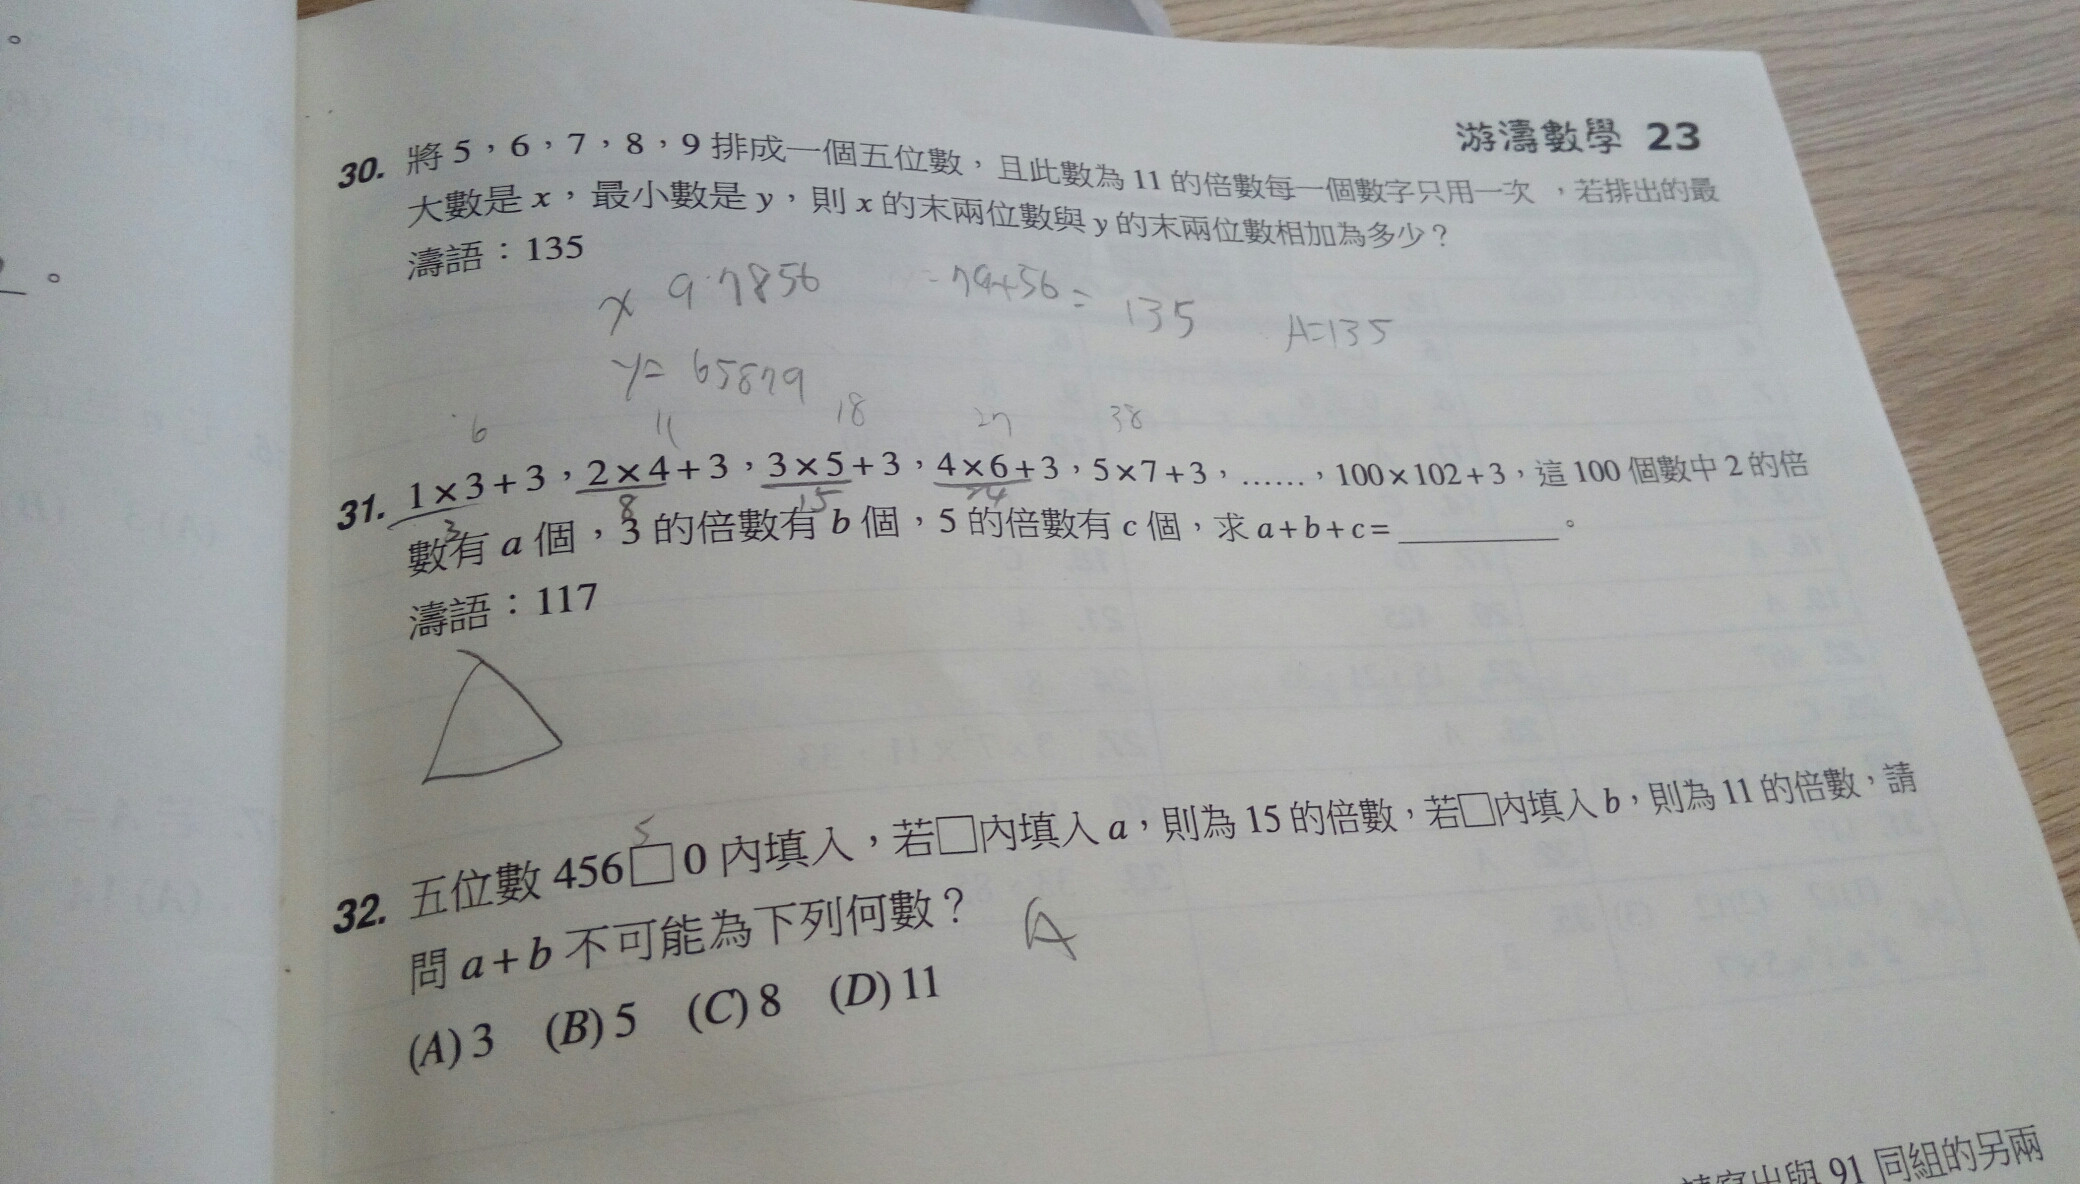 游濤數學 23
30. 將5，6，7，8，9排成一個五位數，且此數為11的倍數每一個數字只用一次，若排出的最
大數是x，最小數是y，則x的末兩位數與y的末兩位數相加為多少？
濤語：135
x 97856 =79+56= 135 A=135
y= 65879
6 11 18 27 38
31. 1×3+3，2×4+3，3×5+3，4×6+3，5×7+3，……，100×102+3，這100個數中2的倍
3 8 15 24
數有a個，3的倍數有b個，5的倍數有c個，求a+b+c=________。
濤語：117
5
32. 五位數456□0內填入，若□內填入a，則為15的倍數，若□內填入b，則為11的倍數，請
問a+b不可能為下列何數？ A
(A)3 (B)5 (C)8 (D)11
91同組的另兩